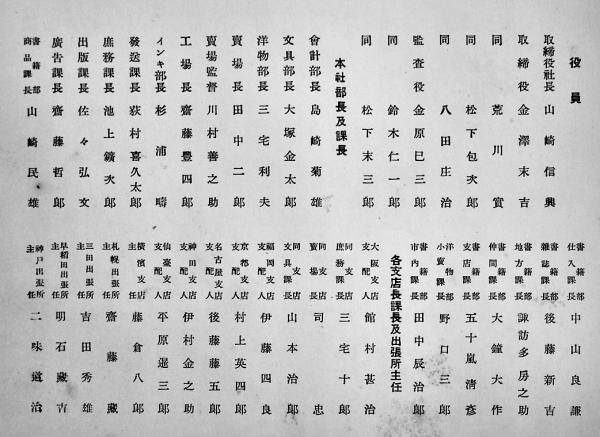 役員
取締役社長 山崎信興
取締役 金澤末吉
同 荒川實
同 松下包次郎
同 八田庄治
監査役 金原巳三郎
同 鈴木仁一郎
同 松下末三郎
本社部長及課長
會計部長 島崎菊雄
文具部長 大塚金太郎
洋物部長 三宅利夫
賣場長 田中二郎
賣場監督 川村善之助
工場長 齋藤豊四郎
インキ部長 杉浦疇
發送課長 荻村喜久太郎
庶務課長 池上鑛次郎
出版課長 佐々弘文
廣告課長 齋藤哲郎
書籍部商品課長 山崎民雄
書籍部仕入課長 中山良謙
書籍部雜誌課長 後藤新吉
書籍部地方課長 諏訪多房之助
書籍部仲間課長 大鐘大作
書籍部支店課長 五十嵐淸彦
洋物部小賣課長 野口三郎
書籍部市內課長 田中辰治郎
各支店長課長及出張所主任
大阪支店支配人 館村甚治
同支店庶務課長 三宅十郎
同支店賣場長 司忠
同支店文具課長 山本治郎
福岡支店支配人 伊藤四良
京都支店支配人 村上英四郎
名古屋支店支配人 後藤藤五郎
神田支店支配人 伊村金之助
仙臺支店支配人 平原遜三郎
橫濱支店主任 藤倉八郎
札幌出張所主任 齋藤藏
三田出張所主任 吉田秀雄
早稻田出張所主任 明石藏吉
神戶出張所主任 二味道治